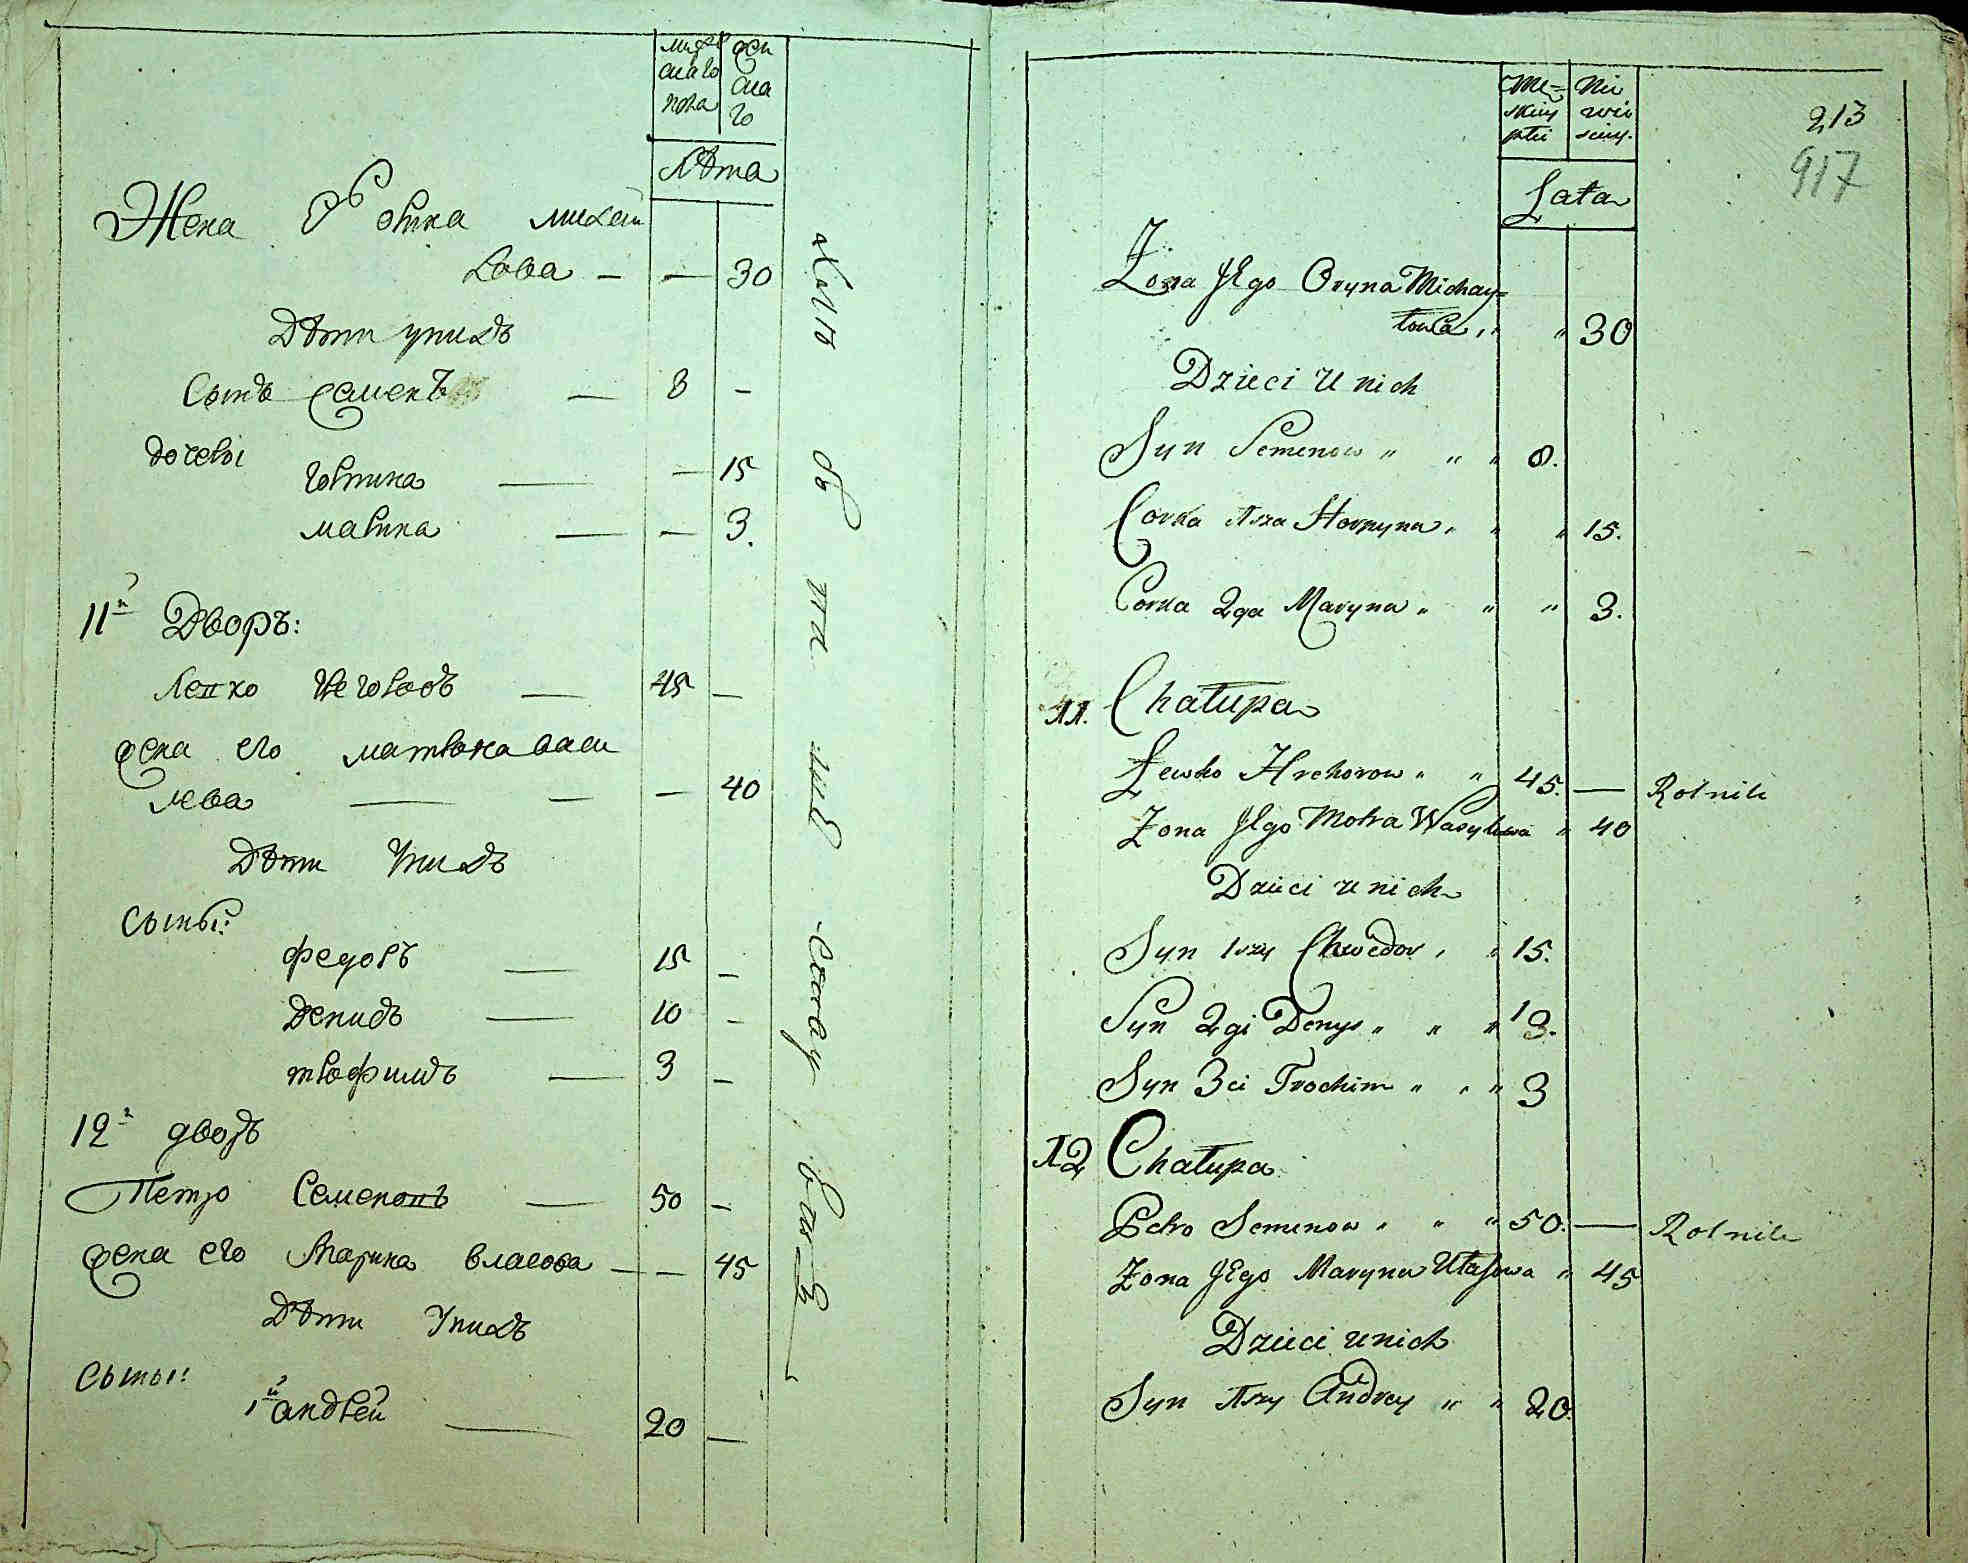 мужескаго пола
женскаго
Лѣта
Жена Орина михай
лова — — 30
Дѣти у нихъ
Сынъ Семенъ — 8 —
дочери
горпина — — 15
марина — — 3.
11й Дворъ:
Левко Негоровъ — 45 —
жена его матрона васи
лева — — — 40
Дѣти у нихъ
Сыны:
Федоръ — 15 —
Денисъ — 10 —
трофимъ — 3 —
12й дворъ
Петро Семеновъ — 50 —
жена его Марина власова — — 45
Дѣти у нихъ
Сыны:
1й андрей — 20 —
213
917
Męskiey płci
Niewieściey.
Lata
Żona Jego Oryna Michay=
łowa " " 30
Dzieci u nich
Syn Semenow " " " 8.
Corka 1sza Horpyna " " " 15.
Corka 2ga Maryna " " " 3.
11. Chałupa
Lewko Hrehorow " " 45. — Rolnik
Żona Jego Motra Wasylowa " 40
Dzieci u nich
Syn 1szy Chwedor " " 15.
Syn 2gi Denys " " " 13.
Syn 3ci Trochim " " " 3
12 Chałupa
Petro Semenow " " " 50. — Rolnik
Żona Jego Maryna Ułasowa " 45
Dzieci u nich
Syn 1szy Andrey " " 20.